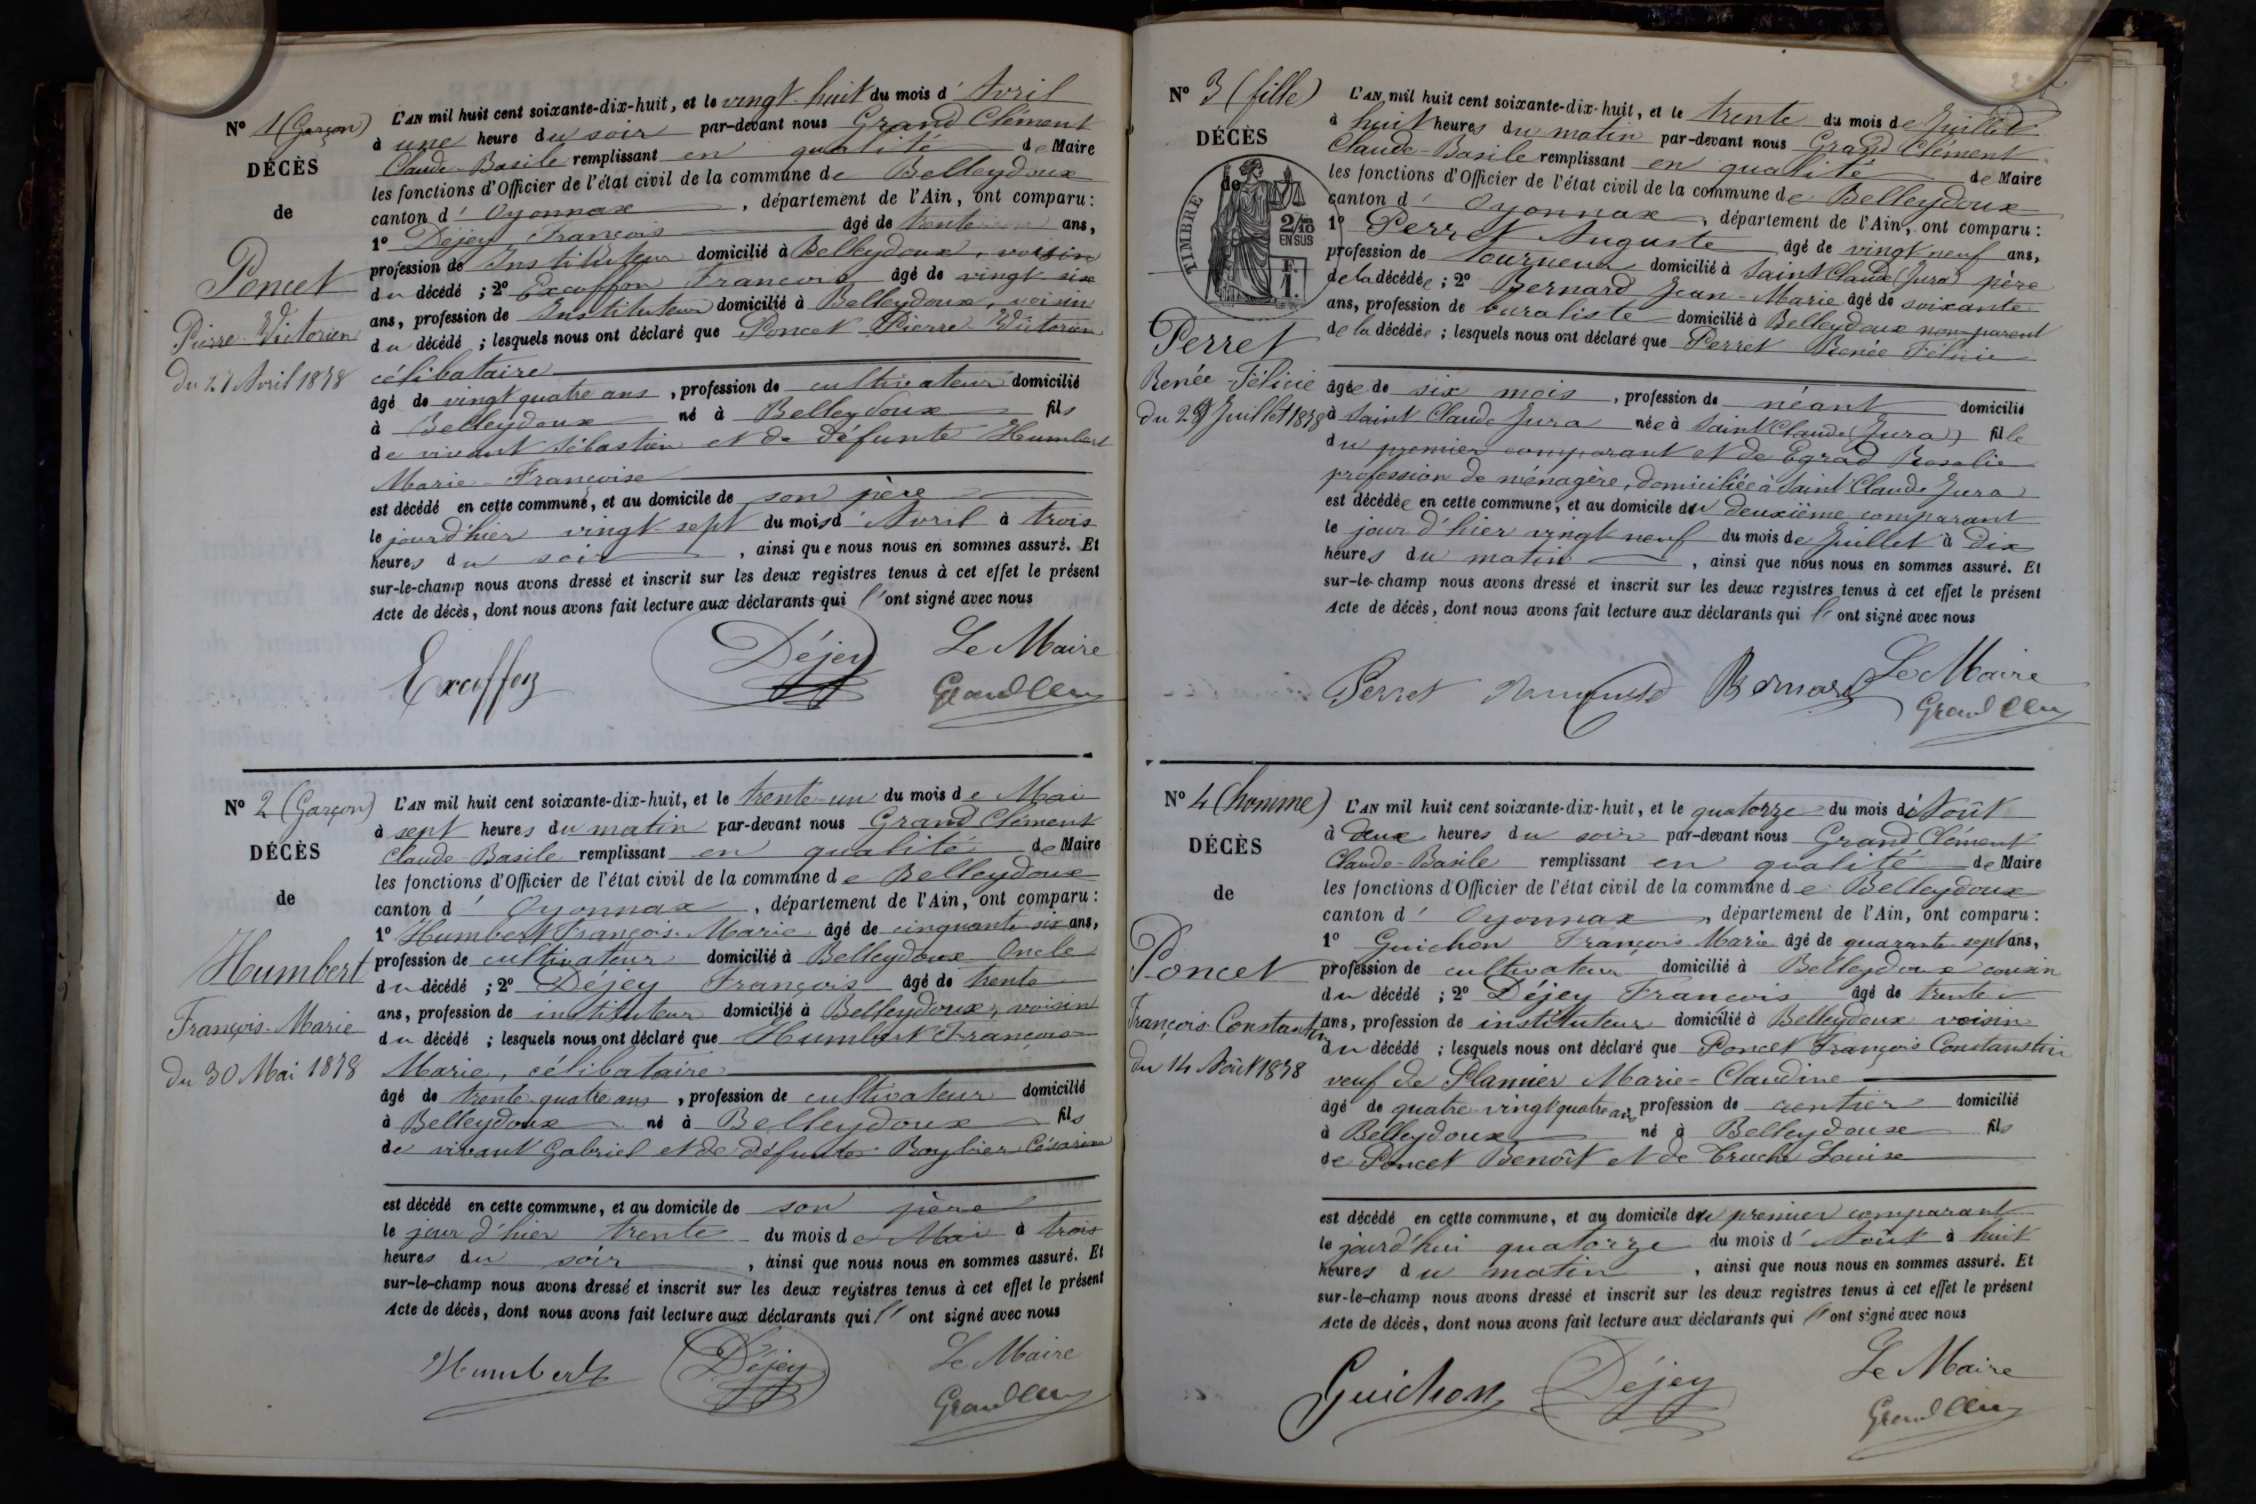 N° 1 (Garçon)
DÉCÈS
de
Poncet
Pierre-Victorien
du 27 Avril 1878
L'AN mil huit cent soixante-dix-huit, et le vingt-huit du mois d'Avril
à une heure du soir par-devant nous Grand Clément
Claude-Basile remplissant en qualité de Maire
les fonctions d'Officier de l'état civil de la commune de Belleydoux
canton d'Oyonnax, département de l'Ain, ont comparu :
1° Déjey François âgé de trente ans,
profession de Instituteur domicilié à Belleydoux, voisin
du décédé ; 2° Excoffon François âgé de vingt six
ans, profession de Instituteur domicilié à Belleydoux, voisin
du décédé ; lesquels nous ont déclaré que Poncet Pierre Victorien
célibataire
âgé de vingt quatre ans, profession de cultivateur domicilié
à Belleydoux né à Belleydoux fils
de vivant Sébastien et de défunte Humbert
Marie-Françoise
est décédé en cette commune, et au domicile de son père
le jourd'hier vingt sept du mois d'Avril à trois
heures du soir, ainsi que nous nous en sommes assuré. Et
sur-le-champ nous avons dressé et inscrit sur les deux registres tenus à cet effet le présent
Acte de décès, dont nous avons fait lecture aux déclarants qui l'ont signé avec nous
Excoffon Déjey Le Maire
Grand Clém
N° 2 (Garçon)
DÉCÈS
de
Humbert
François-Marie
du 30 Mai 1878
L'AN mil huit cent soixante-dix-huit, et le trente-un du mois de Mai
à sept heures du matin par-devant nous Grand Clément
Claude-Basile remplissant en qualité de Maire
les fonctions d'Officier de l'état civil de la commune de Belleydoux
canton d'Oyonnax, département de l'Ain, ont comparu :
1° Humbert François-Marie âgé de cinquante six ans,
profession de cultivateur domicilié à Belleydoux Oncle
du décédé ; 2° Déjey François âgé de trente
ans, profession de instituteur domicilié à Belleydoux, voisin
du décédé ; lesquels nous ont déclaré que Humbert François
Marie, célibataire
âgé de trente-quatre ans, profession de cultivateur domicilié
à Belleydoux né à Belleydoux fils
de vivant Gabriel et de défunte Césarine
est décédé en cette commune, et au domicile de son père
le jour d'hier trente du mois de Mai à trois
heures du soir, ainsi que nous nous en sommes assuré. Et
sur-le-champ nous avons dressé et inscrit sur les deux registres tenus à cet effet le présent
Acte de décès, dont nous avons fait lecture aux déclarants qui l'ont signé avec nous
Humbert Déjey Le Maire
Grand Clém
N° 3 (fille)
DÉCÈS
de
TIMBRE
2/10
EN SUS
F.
1.
Perret
Renée-Félicie
du 29 Juillet 1878
L'AN mil huit cent soixante-dix-huit, et le trente du mois de Juillet
à huit heures du matin par-devant nous Grand Clément
Claude-Basile remplissant en qualité de Maire
les fonctions d'Officier de l'état civil de la commune de Belleydoux
canton d'Oyonnax, département de l'Ain, ont comparu :
1° Perret Auguste âgé de vingt neuf ans,
profession de tourneur domicilié à Saint Claude (Jura) père
de la décédée ; 2° Bernard Jean-Marie âgé de soixante
ans, profession de buraliste domicilié à Belleydoux non parent
de la décédée ; lesquels nous ont déclaré que Perret Renée Félicie
âgée de six mois, profession de néant domicilié
à Saint Claude Jura née à Saint Claude (Jura) fille
du premier comparant et de Egrad Rosalie
profession de ménagère, domiciliée à Saint Claude Jura
est décédée en cette commune, et au domicile du deuxième comparant
le jour d'hier vingt neuf du mois de Juillet à dix
heures du matin, ainsi que nous nous en sommes assuré. Et
sur-le-champ nous avons dressé et inscrit sur les deux registres tenus à cet effet le présent
Acte de décès, dont nous avons fait lecture aux déclarants qui l'ont signé avec nous
Perret Bernard Le Maire
Grand Clém
N° 4 (homme)
DÉCÈS
de
Poncet
François-Constantin
du 14 Août 1878
L'AN mil huit cent soixante-dix-huit, et le quatorze du mois d'Août
à deux heures du soir par-devant nous Grand Clément
Claude-Basile remplissant en qualité de Maire
les fonctions d'Officier de l'état civil de la commune de Belleydoux
canton d'Oyonnax, département de l'Ain, ont comparu :
1° Guichon François Marie âgé de quarante sept ans,
profession de cultivateur domicilié à Belleydoux cousin
du décédé ; 2° Déjey François âgé de trente
ans, profession de instituteur domicilié à Belleydoux voisin
du décédé ; lesquels nous ont déclaré que Poncet François Constanstin
veuf de Plannier Marie-Claudine
âgé de quatre-vingt quatre ans profession de rentier domicilié
à Belleydoux né à Belleydoux fils
de Poncet Benoît et de Truche Louise
est décédé en cette commune, et au domicile du premier comparant
le jourd'hui quatorze du mois d'Août à huit
heures du matin, ainsi que nous nous en sommes assuré. Et
sur-le-champ nous avons dressé et inscrit sur les deux registres tenus à cet effet le présent
Acte de décès, dont nous avons fait lecture aux déclarants qui l'ont signé avec nous
Guichon Déjey Le Maire
Grand Clém